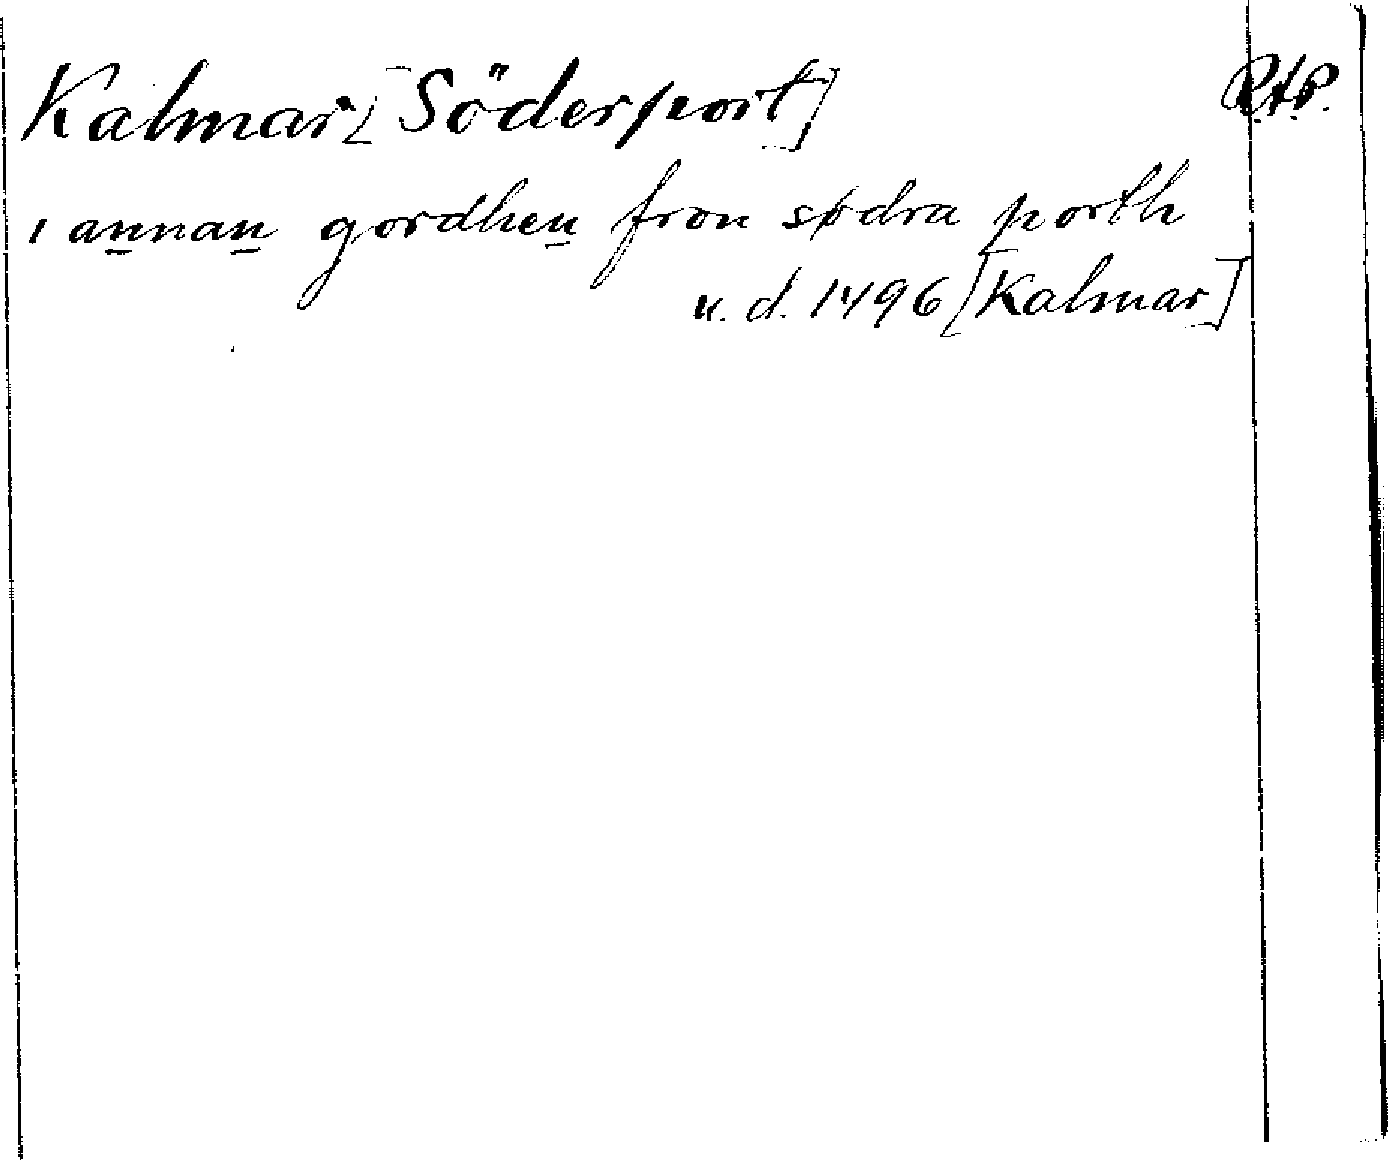 Kalmar [Söderport] RAP.
i annan gordhen fron sødra porth
u. d. 1496 [Kalmar]